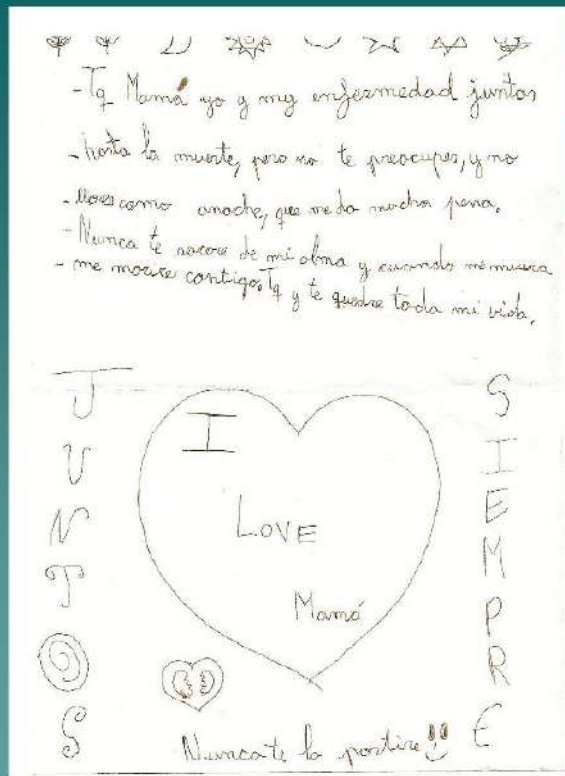 -Tq Mamá yo y my enfermedad juntos
-hasta la muerte, pero no te preocupes, y no
-llores como anoche, que me da mucha pena.
-Nunca te sacare de mi alma y cuando me muera
- me morire contigo. Tq y te quedre toda mi vida.
JUNTOS
SIEMPRE
I
LOVE
Mamá
Nunca te lo partire!!